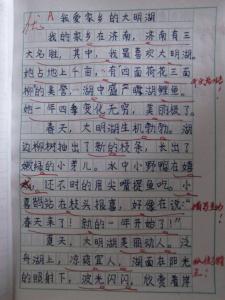 优 A 我爱家乡的大明湖
我的家乡在济南,济南有三
大名胜,其中,我最喜欢大明湖。
她占地上千亩,有四面荷花三面
柳的美誉,湖中盛产露湖鲤鱼。
她一年四季变化无穷,美丽极了。
春天,大明湖生机勃勃。湖
边柳树抽出了新的枝条,长出了
嫩绿的小芽儿。水中小野鸭在嬉
戏,还不时的用尖嘴捉鱼。小
喜鹊站在枝头报喜,好像在说:“
春天来了!新的一年开始了!”
夏天,大明湖美丽动人。泛
舟湖上,凉爽宜人。湖面在阳光
的照射下,波光闪闪。欣赏着岸